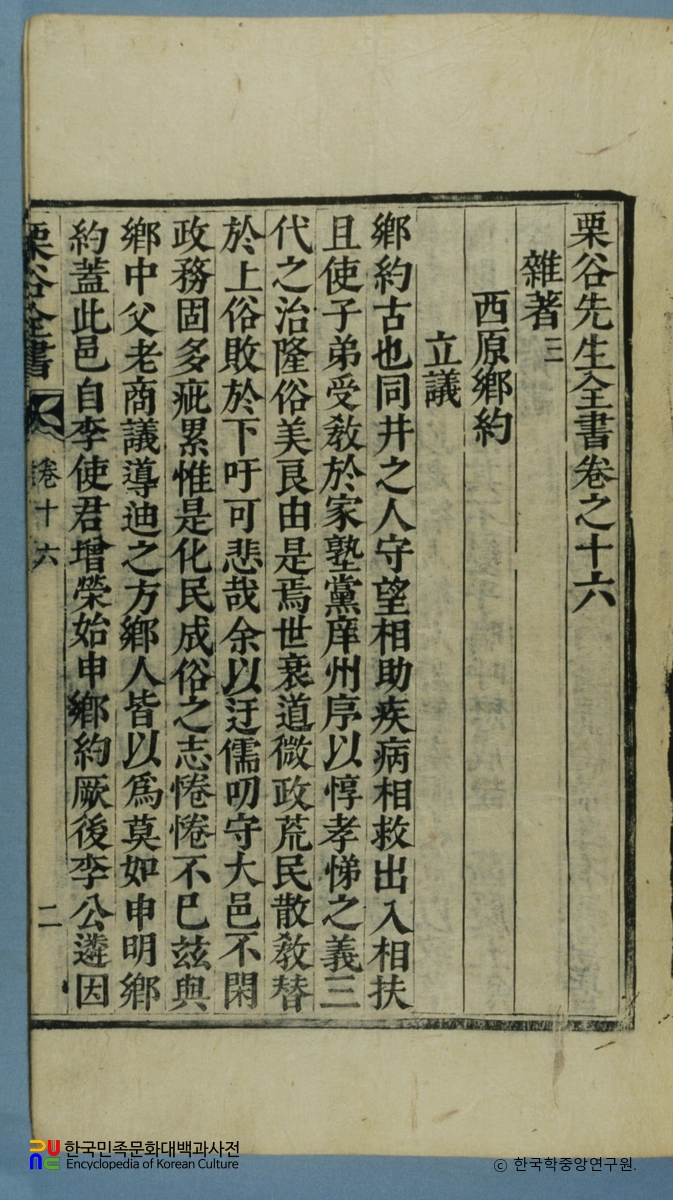 栗谷先生全書卷之十六
雜著三
西原鄉約
立議
鄉約古也同井之人守望相助疾病相救出入相扶
且使子弟受敎於家塾黨庠州序以惇孝悌之義三
代之治隆俗美良由是焉世衰道微政荒民散敎替
於上俗敗於下吁可悲哉余以迂儒叨守大邑不閑
政務固多疵累惟是化民成俗之志惓惓不已玆與
鄉中父老商議導迪之方鄉人皆以爲莫如申明鄉
約蓋此邑自李使君增榮始申鄉約厥後李公遴因
栗谷全書 卷十六 二
한국민족문화대백과사전
Encyclopedia of Korean Culture
© 한국학중앙연구원.